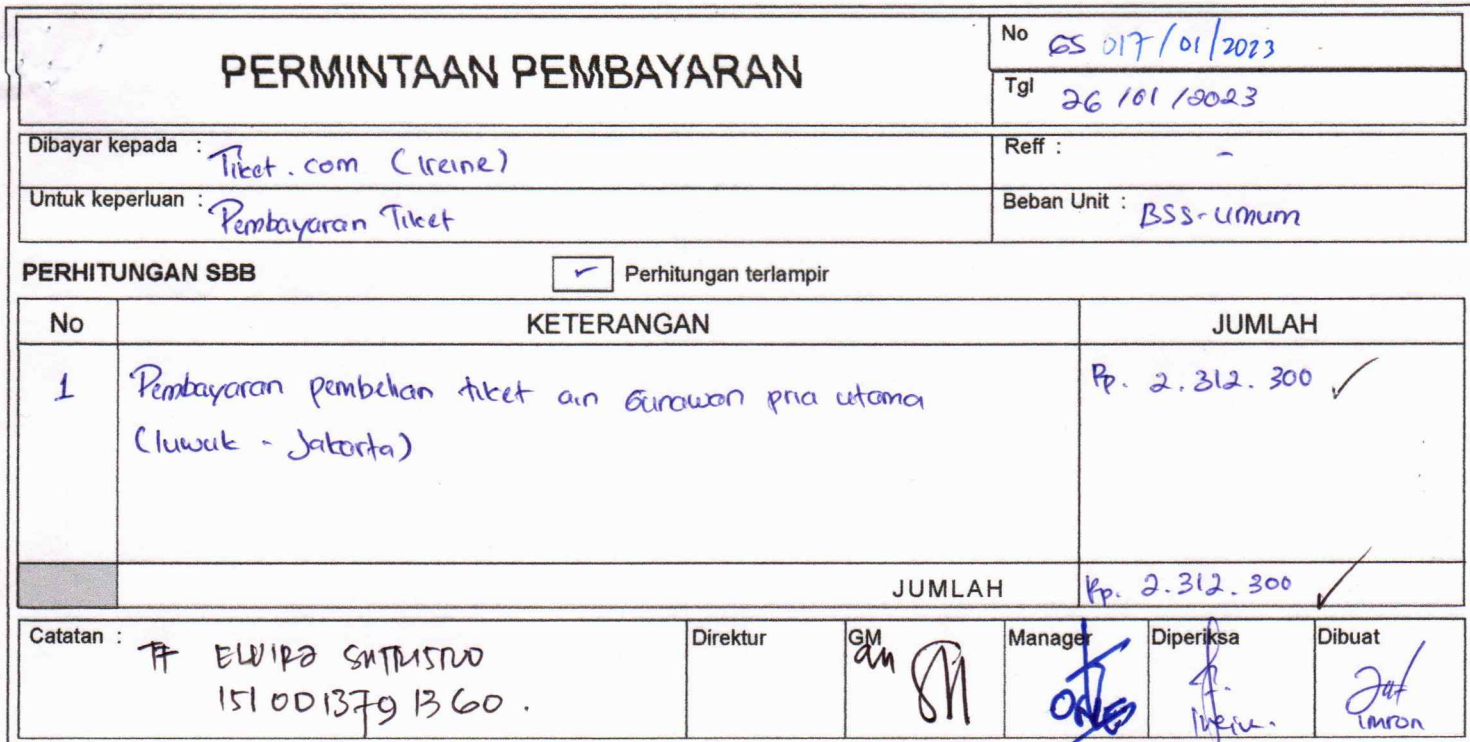 PERMINTAAN PEMBAYARAN
No GS 017/01/2023
Tgl 26/01/2023
Dibayar kepada : Tiket.com (Ireine)
Reff : -
Untuk keperluan : Pembayaran Tiket
Beban Unit : BSS-Umum
PERHITUNGAN SBB ✓ Perhitungan terlampir
No KETERANGAN JUMLAH
1 Pembayaran pembelian tiket a.n Gunawan pria utama Rp. 2.312.300 ✓
(luwuk - Jakarta)
JUMLAH Rp. 2.312.300 ✓
Catatan : TF ELVIRA SUTRISNO
1510013791360.
Direktur
GM an
Manager
Diperiksa
Dibuat
Imron